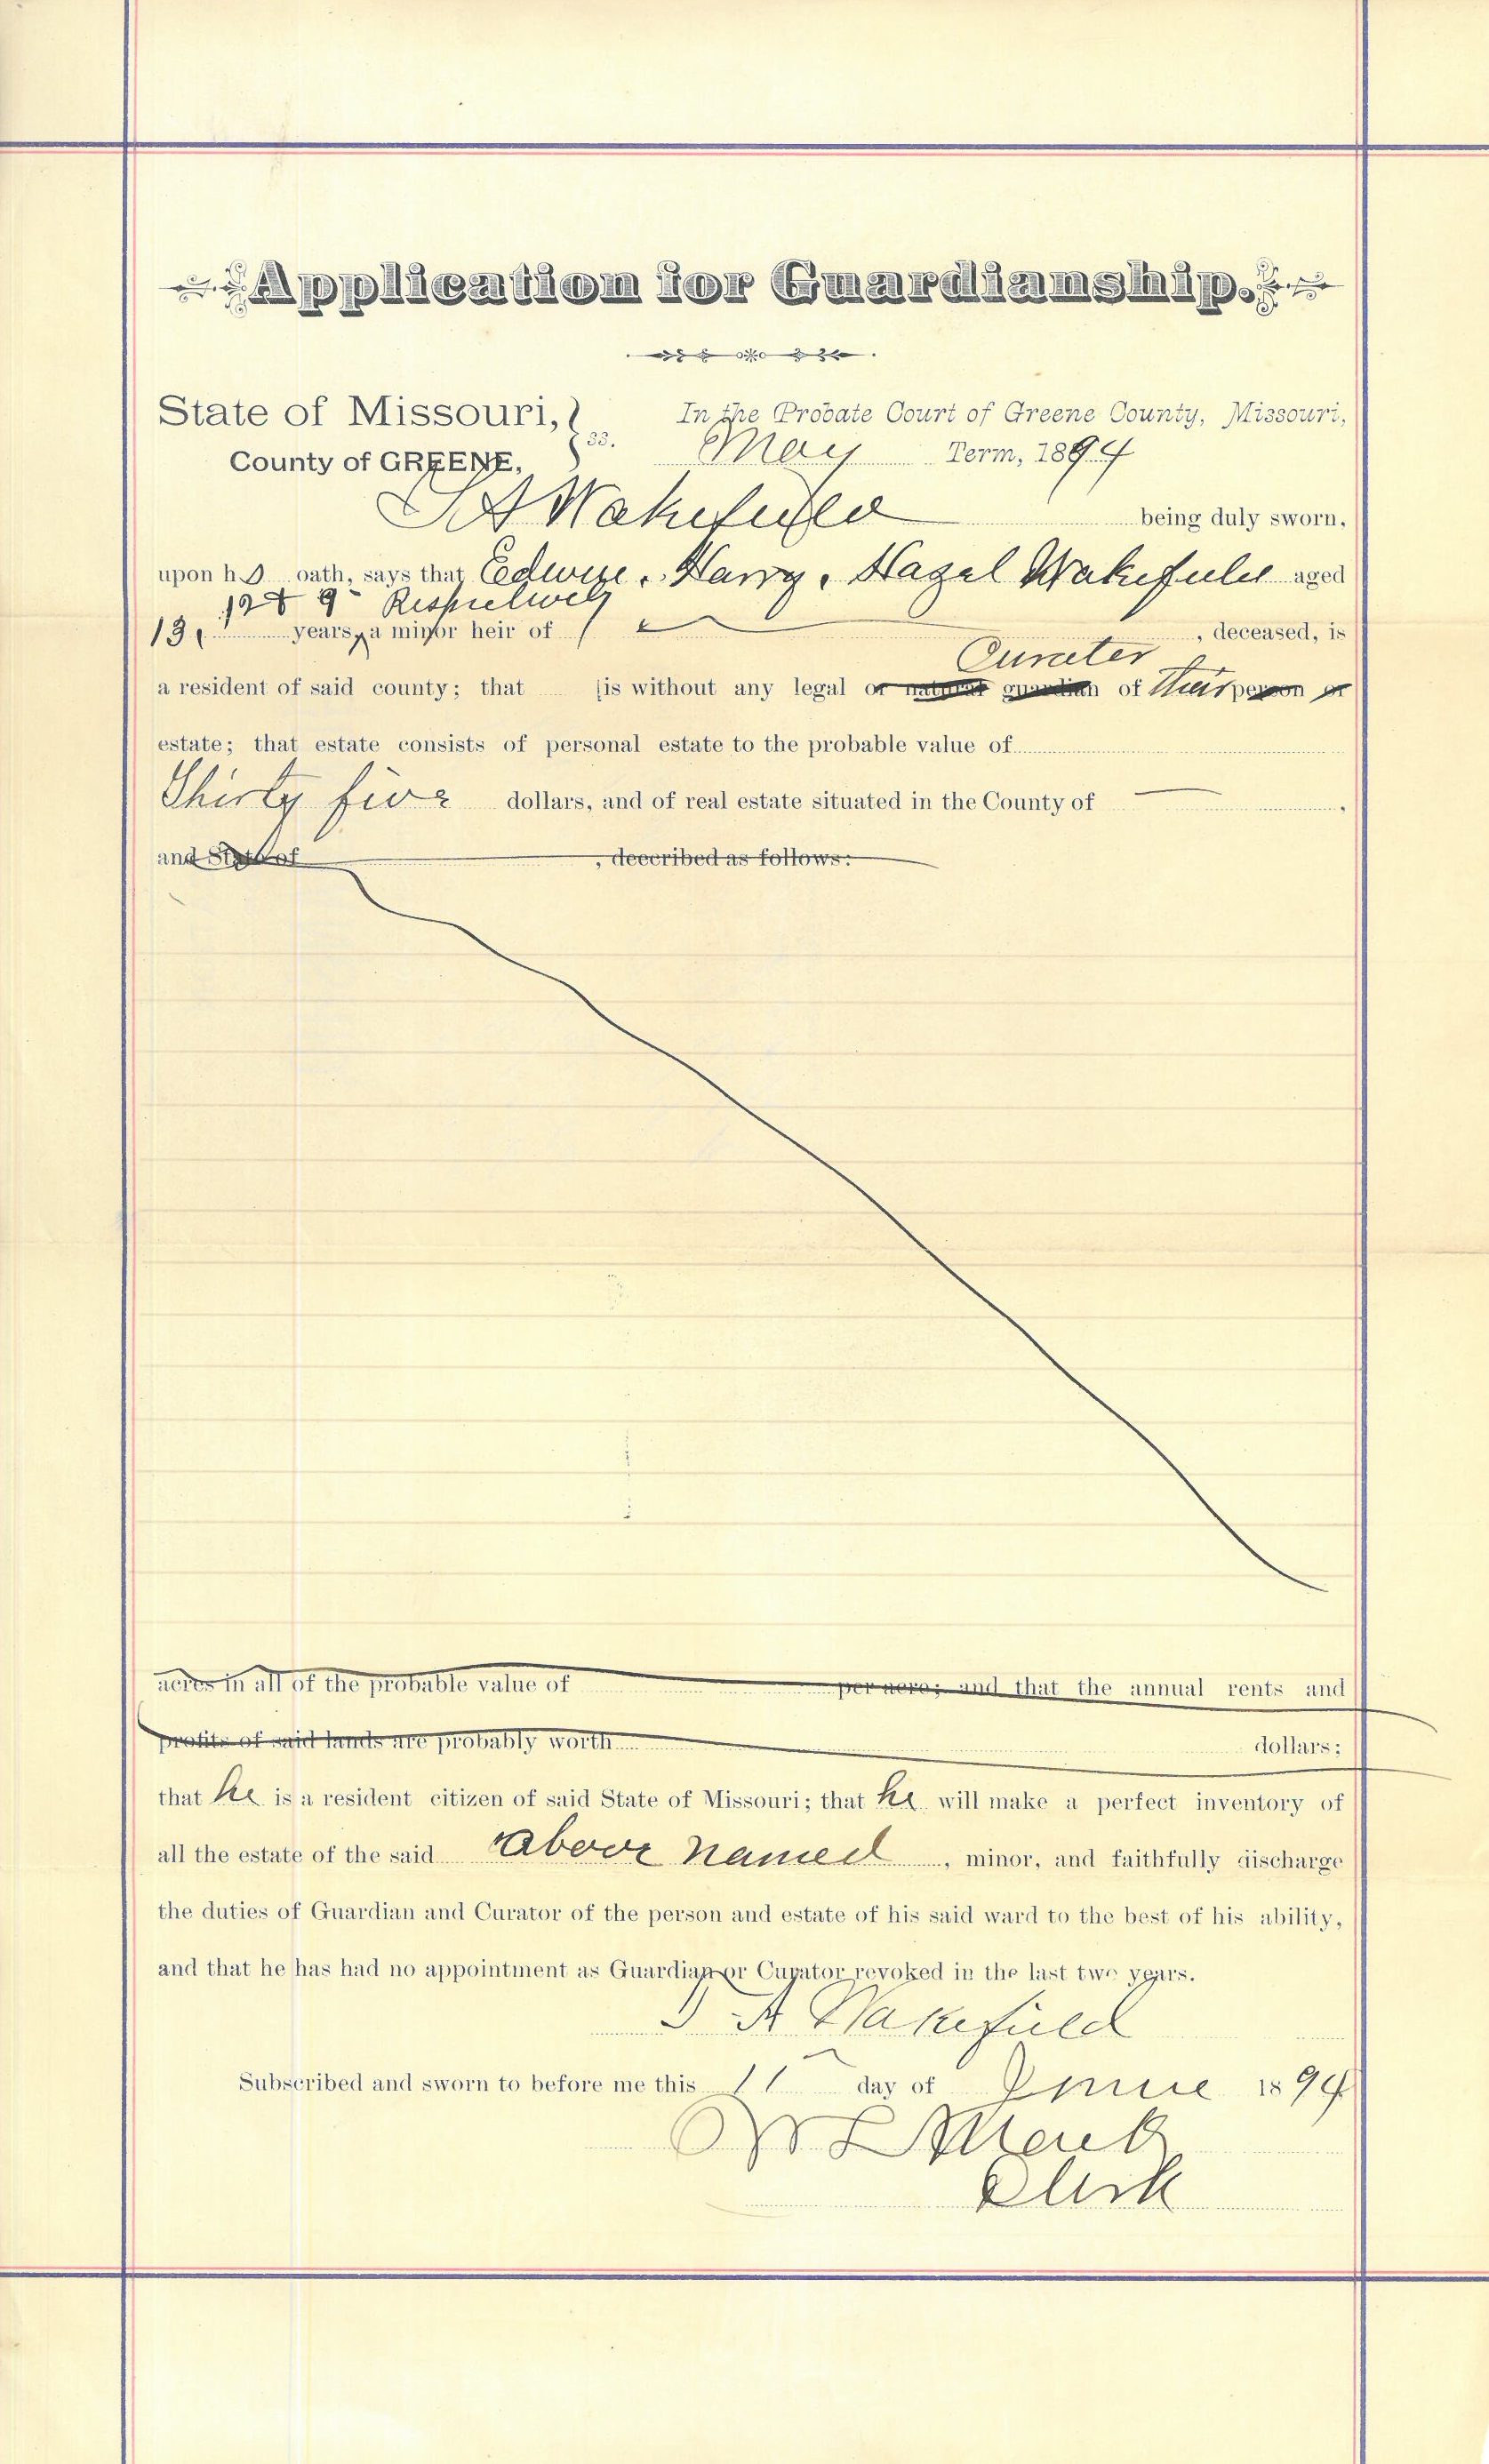 Application for Guardianship.
State of Missouri, } ss.
County of GREENE,
In the Probate Court of Greene County, Missouri,
May Term, 1894
S A Wakefield being duly sworn,
upon his oath, says that Edwin, Harry, Hazel Wakefield aged
12 & 9 Respectively
13, years, a minor heir of , deceased, is
Curator
a resident of said county; that is without any legal or natural guardian of their person or
estate; that estate consists of personal estate to the probable value of
Thirty five dollars, and of real estate situated in the County of — ,
and State of , described as follows:
acres in all of the probable value of per acre; and that the annual rents and
profits of said lands are probably worth dollars;
that he is a resident citizen of said State of Missouri; that he will make a perfect inventory of
all the estate of the said above named , minor, and faithfully discharge
the duties of Guardian and Curator of the person and estate of his said ward to the best of his ability,
and that he has had no appointment as Guardian or Curator revoked in the last two years.
S A Wakefield
Subscribed and sworn to before me this 11 day of June 1894
Clerk